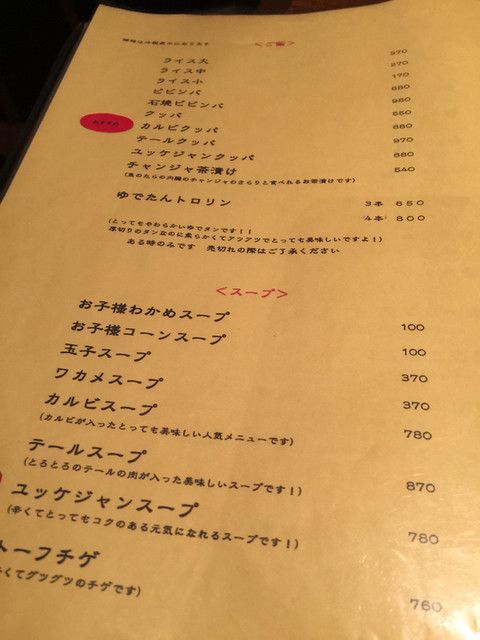 <ご飯>
ライス大 370
ライス中 270
ライス小 170
ビビンバ 680
石焼ビビンバ 980
クッパ 550
おすすめ カルビクッパ 880
テールクッパ 970
ユッケジャンクッパ 880
チャンジャ茶漬け 540
(魚のたらの内臓のチャンジャのさらりと食べれるお茶漬けです)
ゆでたんトロリン 3本 650
4本 800
(とってもやわらかいゆでタンです!!
厚切りのタンなのに柔らかくてアツアツでとっても美味しいですよ!)
ある時のみです 売切れの際はご了承ください
<スープ>
お子様わかめスープ 100
お子様コーンスープ 100
玉子スープ 370
ワカメスープ 370
カルビスープ 780
(カルビが入ったとっても美味しい人気メニューです)
テールスープ 870
(とろとろのテールの肉が入った美味しいスープです!)
ユッケジャンスープ 780
(辛くてとってもコクのある元気になれるスープです!)
トーフチゲ 760
辛くてグツグツのチゲです)